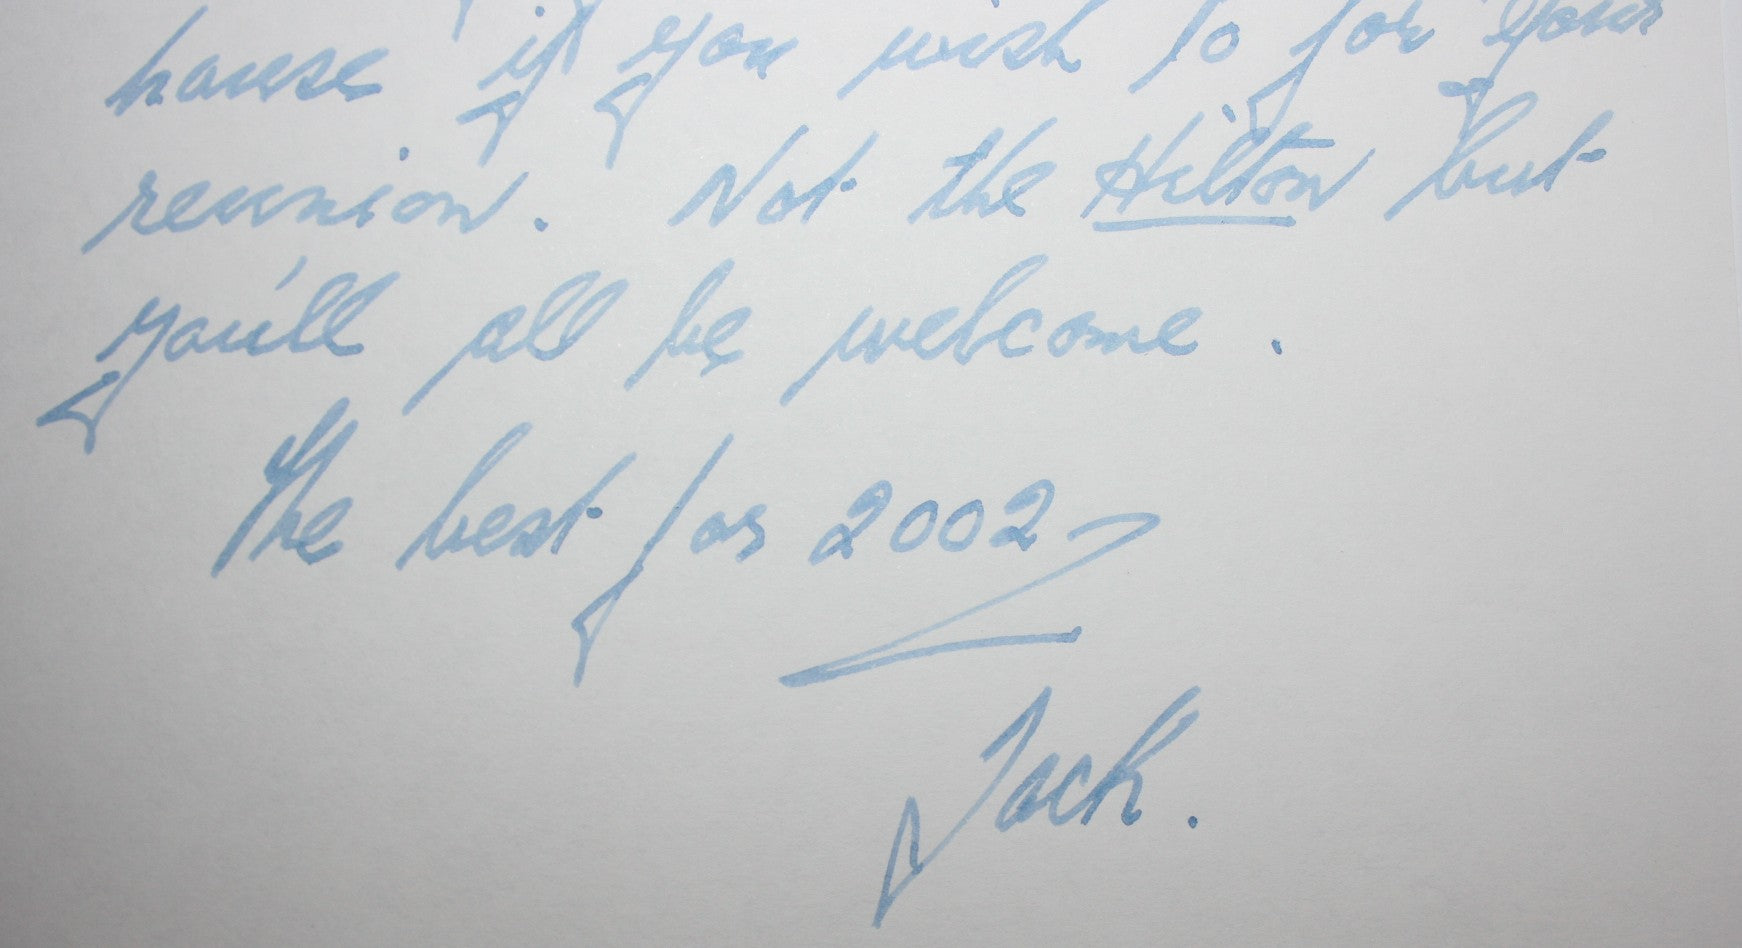 house if you wish to for your
reunion. Not the Hilton but
you'll all be welcome.
The best for 2002
Jack.